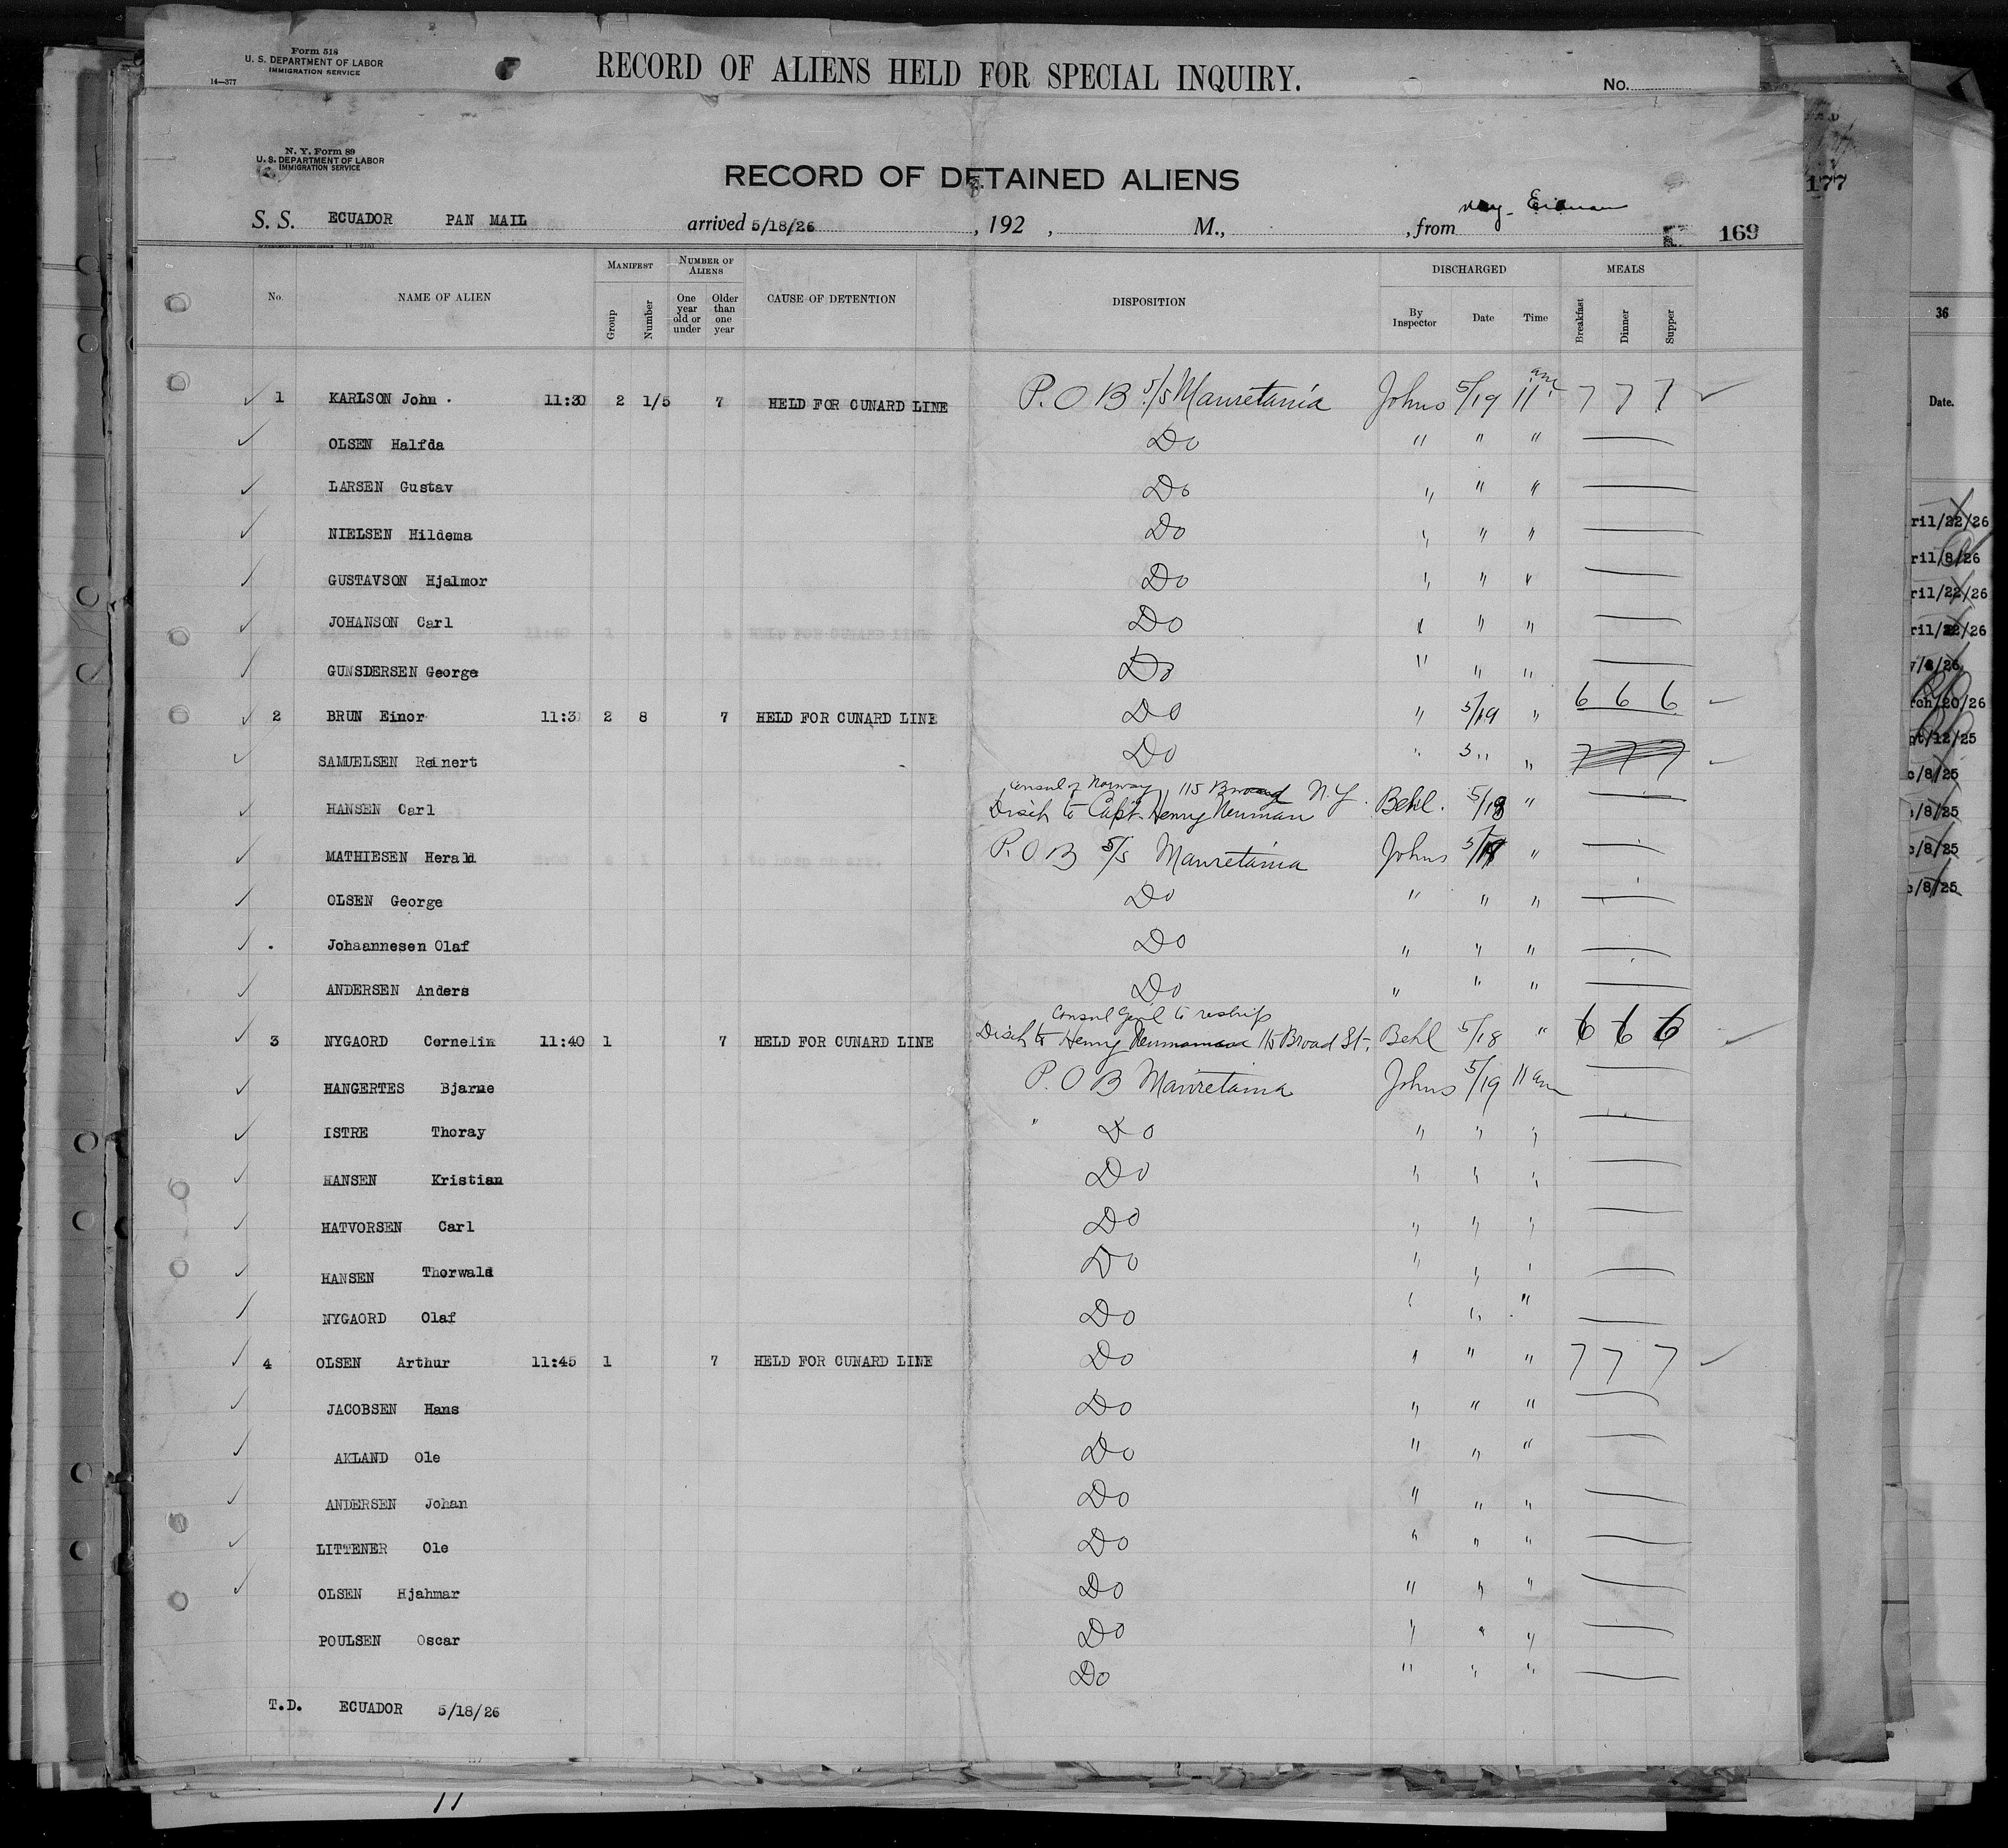 Form 518
U. S. DEPARTMENT OF LABOR
IMMIGRATION SERVICE
14—377
RECORD OF ALIENS HELD FOR SPECIAL INQUIRY.
No.
N. Y. Form 89
U. S. DEPARTMENT OF LABOR
IMMIGRATION SERVICE
RECORD OF DETAINED ALIENS
177
S. S. ECUADOR PAN MAIL arrived 5/18/26, 192 , M., , from
169
No. NAME OF ALIEN MANIFEST Group Number NUMBER OF ALIENS One year old or under Older than one year CAUSE OF DETENTION DISPOSITION DISCHARGED By Inspector Date Time MEALS Breakfast Dinner Supper
36
Date.
1 KARLSON John 11:30 2 1/5 7 HELD FOR CUNARD LINE P. O B S/S Mauretania Johns 5/19 11 am 7 7 7
OLSEN Halfda Do " " "
LARSEN Gustav Do " " "
NIELSEN Hildema Do " " "
GUSTAVSON Hjalmor Do " " "
JOHANSON Carl Do " " "
GUNSDERSEN George Do " " "
2 BRUN Einor 11:3 2 8 7 HELD FOR CUNARD LINE Do " 5/19 " 6 6 6
SAMUELSEN Reinert Do " 5 " " 7 7 7
Consul of Norway 115 Broad N.Y.
HANSEN Carl Disch to Capt. Henry Neuman Behl. 5/18 "
MATHIESEN Herald P. O B S/S Mauretania Johns 5/19 "
OLSEN George Do " " "
Johaannesen Olaf Do " " "
ANDERSEN Anders Do " " "
Consul Genl to reship
3 NYGAORD Cornelim 11:40 1 7 HELD FOR CUNARD LINE Disch to Henry 115 Broad St. Behl 5/18 " 6 6 6
HANGERTES Bjarne P. O B Mauretania Johns 5/19 11 am
ISTRE Thoray " Do " " "
HANSEN Kristian Do " " "
HATVORSEN Carl Do " " "
HANSEN Thorwald Do " " "
NYGAORD Olaf Do " " "
4 OLSEN Arthur 11:45 1 7 HELD FOR CUNARD LINE Do " " " 7 7 7
JACOBSEN Hans Do " " "
AKLAND Ole Do " " "
ANDERSEN Johan Do " " "
LITTENER Ole Do " " "
OLSEN Hjahmar Do " " "
POULSEN Oscar Do " " "
Do " " "
T.D. ECUADOR 5/18/26
ril/22/26
ril/8/26
ril/22/26
ril/22/26
rch/20/26
pt/12/25
c/8/25
c/8/25
c/8/25
c/8/25
11